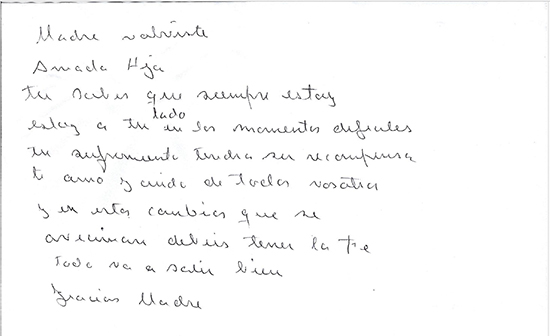 Madre valviste
Amada Hija
tu sabes que siempre estoy
estoy a tu lado en los momentos dificiles
tu sufrimiento tendra su recompensa
te amo y cuido de todos vosotros
y en estos cambios que se
avecinan debeis tener la Fe
todo va a salir bien
gracias Madre